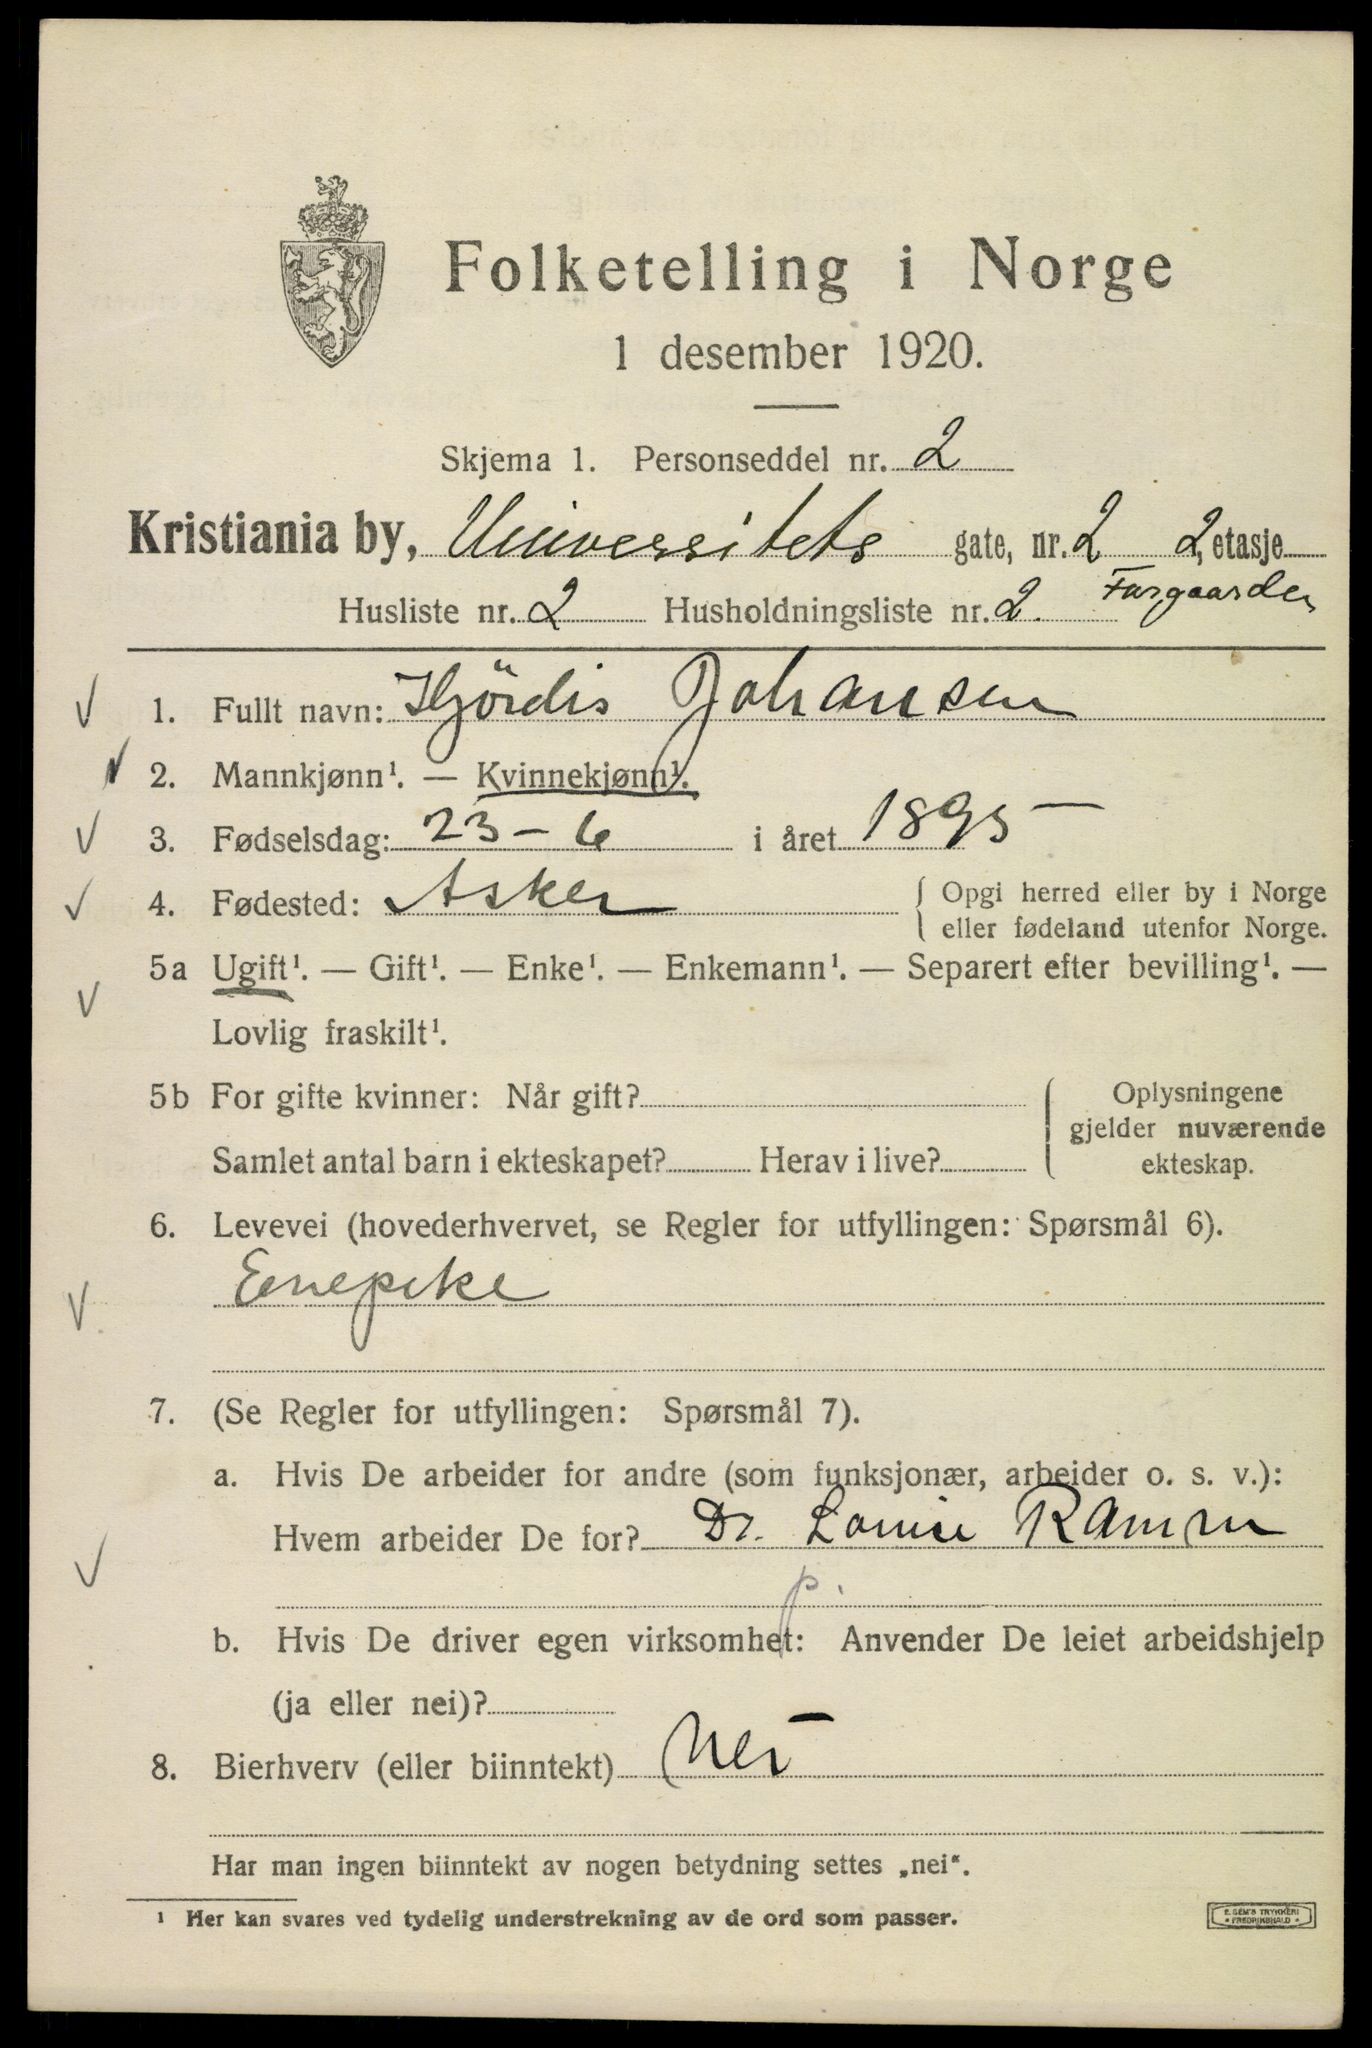 Folketelling i Norge
1 desember 1920.
Skjema 1. Personseddel nr. 2
Kristiania by, Universitets gate, nr. 2 2, etasje
Husliste nr. 2 Husholdningsliste nr. 2. Forgaarden
1. Fullt navn: Hjördis Johansen
2. Mannkjønn¹. — Kvinnekjønn¹.
3. Fødselsdag: 23 – 6 i året 1895 —
4. Fødested: Asker { Opgi herred eller by i Norge
eller fødeland utenfor Norge.
5a Ugift¹. — Gift¹. — Enke¹. — Enkemann¹. — Separert efter bevilling¹. —
Lovlig fraskilt¹.
5b For gifte kvinner: Når gift?
Samlet antal barn i ekteskapet? Herav i live?
Oplysningene
gjelder nuværende
ekteskap.
6. Levevei (hovederhvervet, se Regler for utfyllingen: Spørsmål 6).
Enepike
7. (Se Regler for utfyllingen: Spørsmål 7).
a. Hvis De arbeider for andre (som funksjonær, arbeider o. s. v.):
Hvem arbeider De for? Dr. Louise Ramm
p.
b. Hvis De driver egen virksomhet: Anvender De leiet arbeidshjelp
(ja eller nei)?
8. Bierhverv (eller biinntekt) Nei
Har man ingen biinntekt av nogen betydning settes „nei“.
¹ Her kan svares ved tydelig understrekning av de ord som passer.
E. SEM'S TRYKKERI
• FREDRIKSHALD •